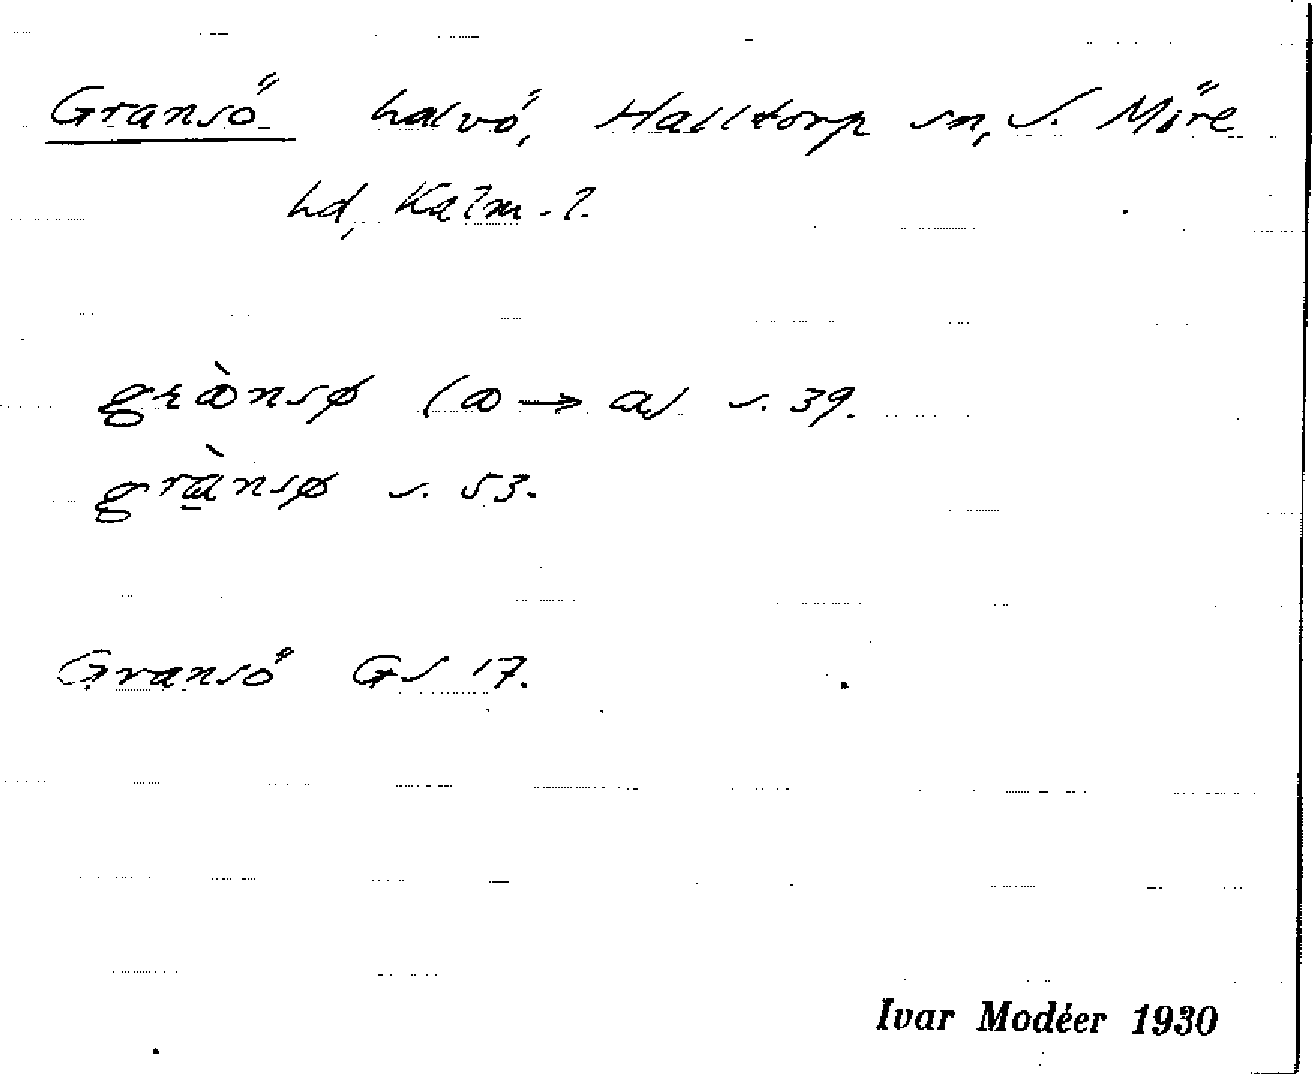 Gransö halvö, Halltorp sn, S. Möre
hd, Kalm. l.
grànsø (a → a) s. 39.
grànsø s. 53.
Gransö GS 17.
Ivar Modéer 1930